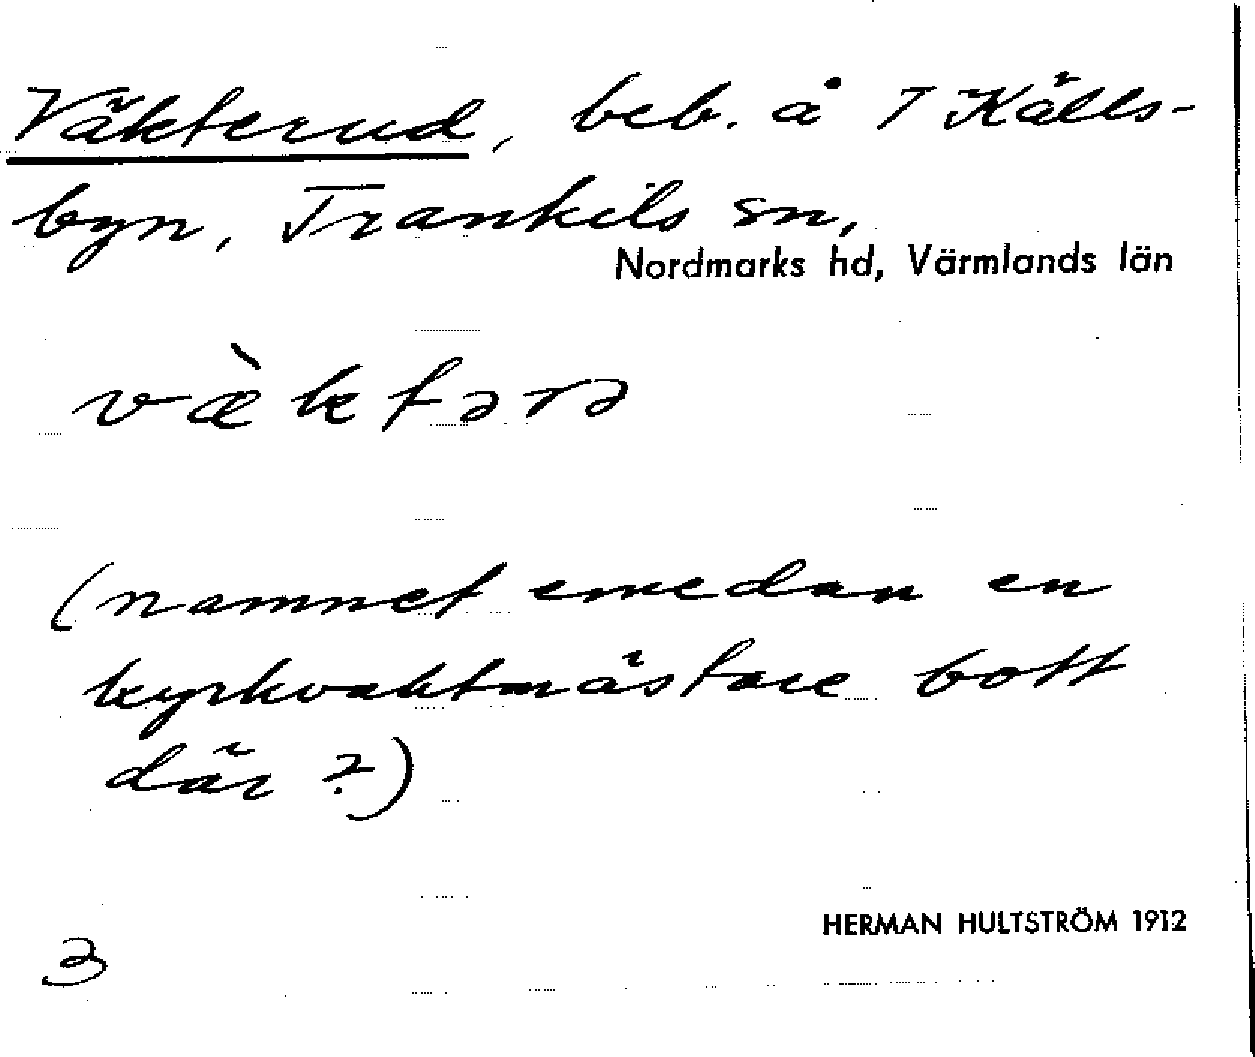 Väkterud, beb. å 7 Källs-
byn, Trankils sn,
Nordmarks hd, Värmlands län
væ̀ktərə
(namnet emedan en
kyrkvaktmästare bott
där ?)
HERMAN HULTSTRÖM 1912
3